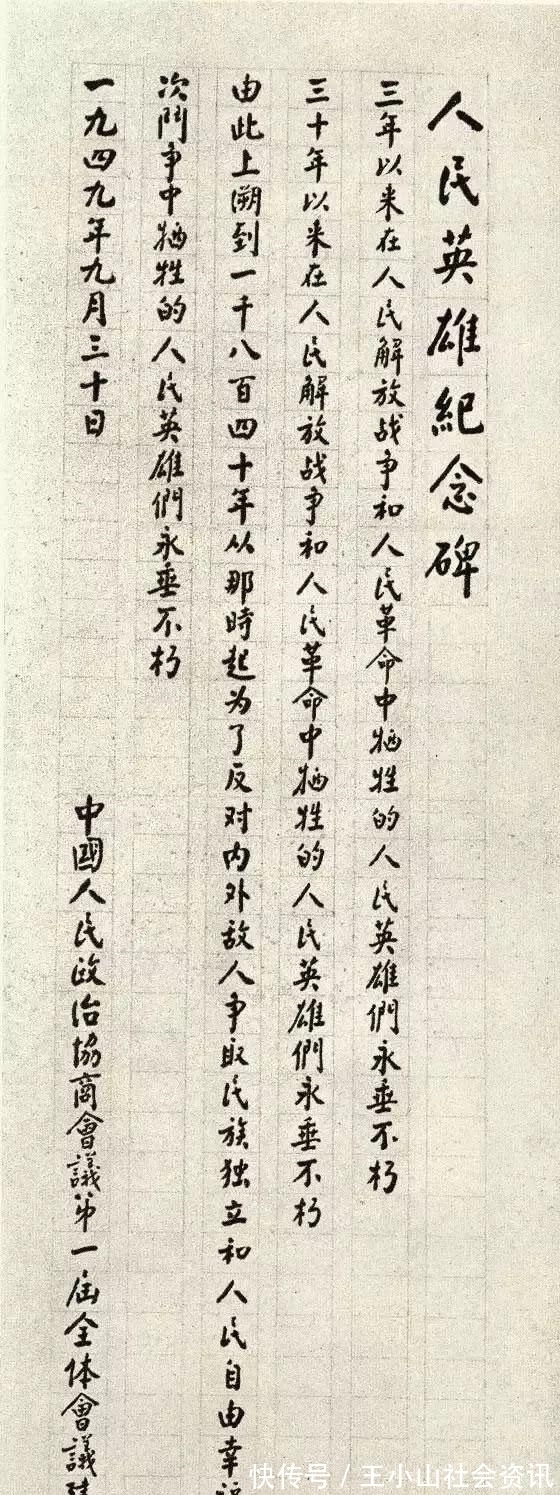 人民英雄紀念碑
三年以来在人民解放战争和人民革命中牺牲的人民英雄們永垂不朽
三十年以来在人民解放战争和人民革命中牺牲的人民英雄們永垂不朽
由此上溯到一千八百四十年从那時起为了反对内外敌人争取民族独立和人民自由幸
次鬥争中牺牲的人民英雄們永垂不朽
一九四九年九月三十日
中國人民政治協商會議第一届全体會議
快传号/王小山社会资讯